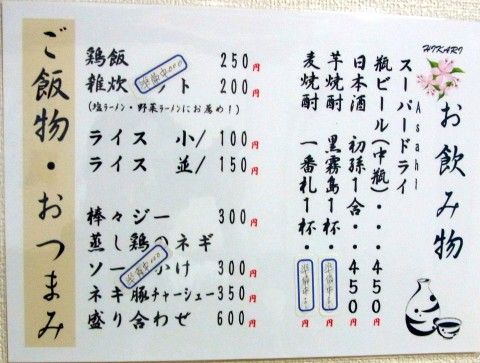 HIKARI
お飲み物
Asahi
スーパードライ
瓶ビール(中瓶)・・450円
日本酒 初孫1合・・450円
芋焼酎 黒霧島1杯・
準備中
円
麦焼酎 一番札1杯・
準備中
円
ご飯物・おつまみ
鶏飯 250円
準備中
雑炊 ット 200円
(塩ラーメン・野菜ラーメンにお薦め!)
ライス 小/100円
ライス 並/150円
棒々ジー 300円
蒸し鶏のネギ
準備中
ソー かけ 300円
ネギ豚チャーシュー350円
盛り合わせ 600円